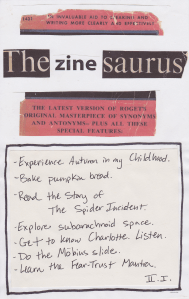 AN INVALUABLE AID TO READING AND
WRITING MORE CLEARLY AND EFFECTIVELY
The zine saurus
THE LATEST VERSION OF ROGET'S
ORIGINAL MASTERPIECE OF SYNONYMS
AND ANTONYMS-PLUS ALL THESE
SPECIAL FEATURES:
-Experience Autumn in my Childhood.
-Bake pumpkin bread.
-Read the Story of
The Spider Incident.
-Explore subarachnoid space.
-Get to know Charlotte. Listen.
-Do the Möbius slide.
-Learn the Fear-Trust Mantra.
II.I.